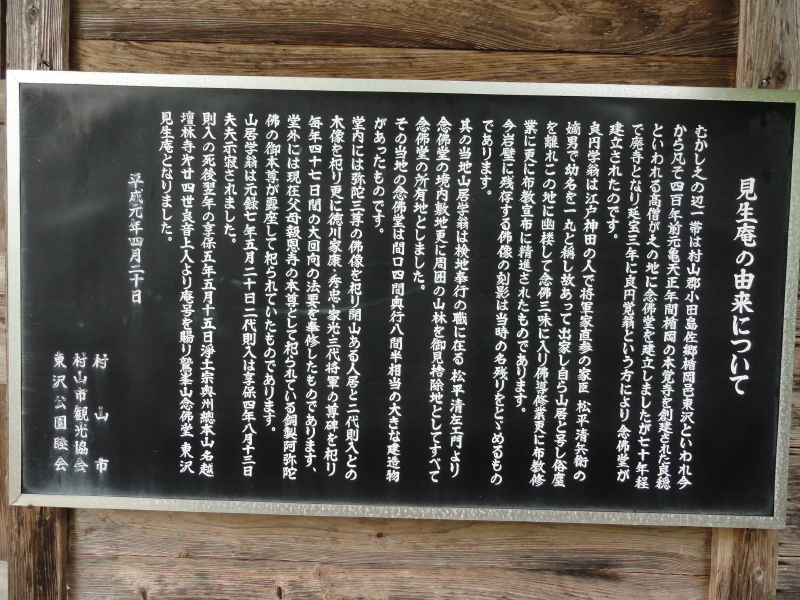 見生庵の由来について
むかし之の辺一帯は村山郡小田島佐郷楯岡邑東沢といわれ今
から凡そ四百年前元亀天正年間楯岡の本覚寺を創建された良穏
といわれる高僧が之の地に念佛堂を建立しましたが七十年程
で廃寺となり延宝三年に良円覚翁という方により念佛堂が
建立されたのです。
良円学翁は江戸神田の人で将軍家直参の家臣 松平清兵衛の
嫡男で幼名を一丸と稱し故あって出家し自ら山居と号し俗塵
を離れこの地に幽棲して念佛三昧に入り佛導修業更に布教修
業に更に布教宣布に精進されたものであります。
今岩壁に残存する佛像の刻影は当時の名残りをとゞめるもの
であります。
其の当地山居学翁は検地奉行の職に在る 松平清左エ門より
念佛堂の境内数地更に周囲の山林を御見捨除地としてすべて
念佛堂の所有地としました。
その当地の念佛堂は間口四間奥行八間半相当の大きな建造物
があったものです。
堂内には弥陀三尊の佛像を祀り開山ある人居と二代則入との
木像を祀り更に徳川家康・秀忠・家光三代将軍の尊碑を祀り
毎年四十七日間の大回向の法要を奉修したものであります、
堂外には現在父母報恩寺の本尊として祀られている銅製阿弥陀
佛の御本尊が露座して祀られていたものであります。
山居学翁は元録七年五月二十日二代則入は享保四年八月十三日
夫夫示寂されました。
則入の死後翌年の享保五年五月十五日浄土宗奥州總本山名越
壇林寺㐧廿四世良音上人より庵号を賜り鷲峯山念佛堂 東沢
見生庵となりました。
平成元年四月二十日
村山市
村山市観光協会
東沢公園睦会